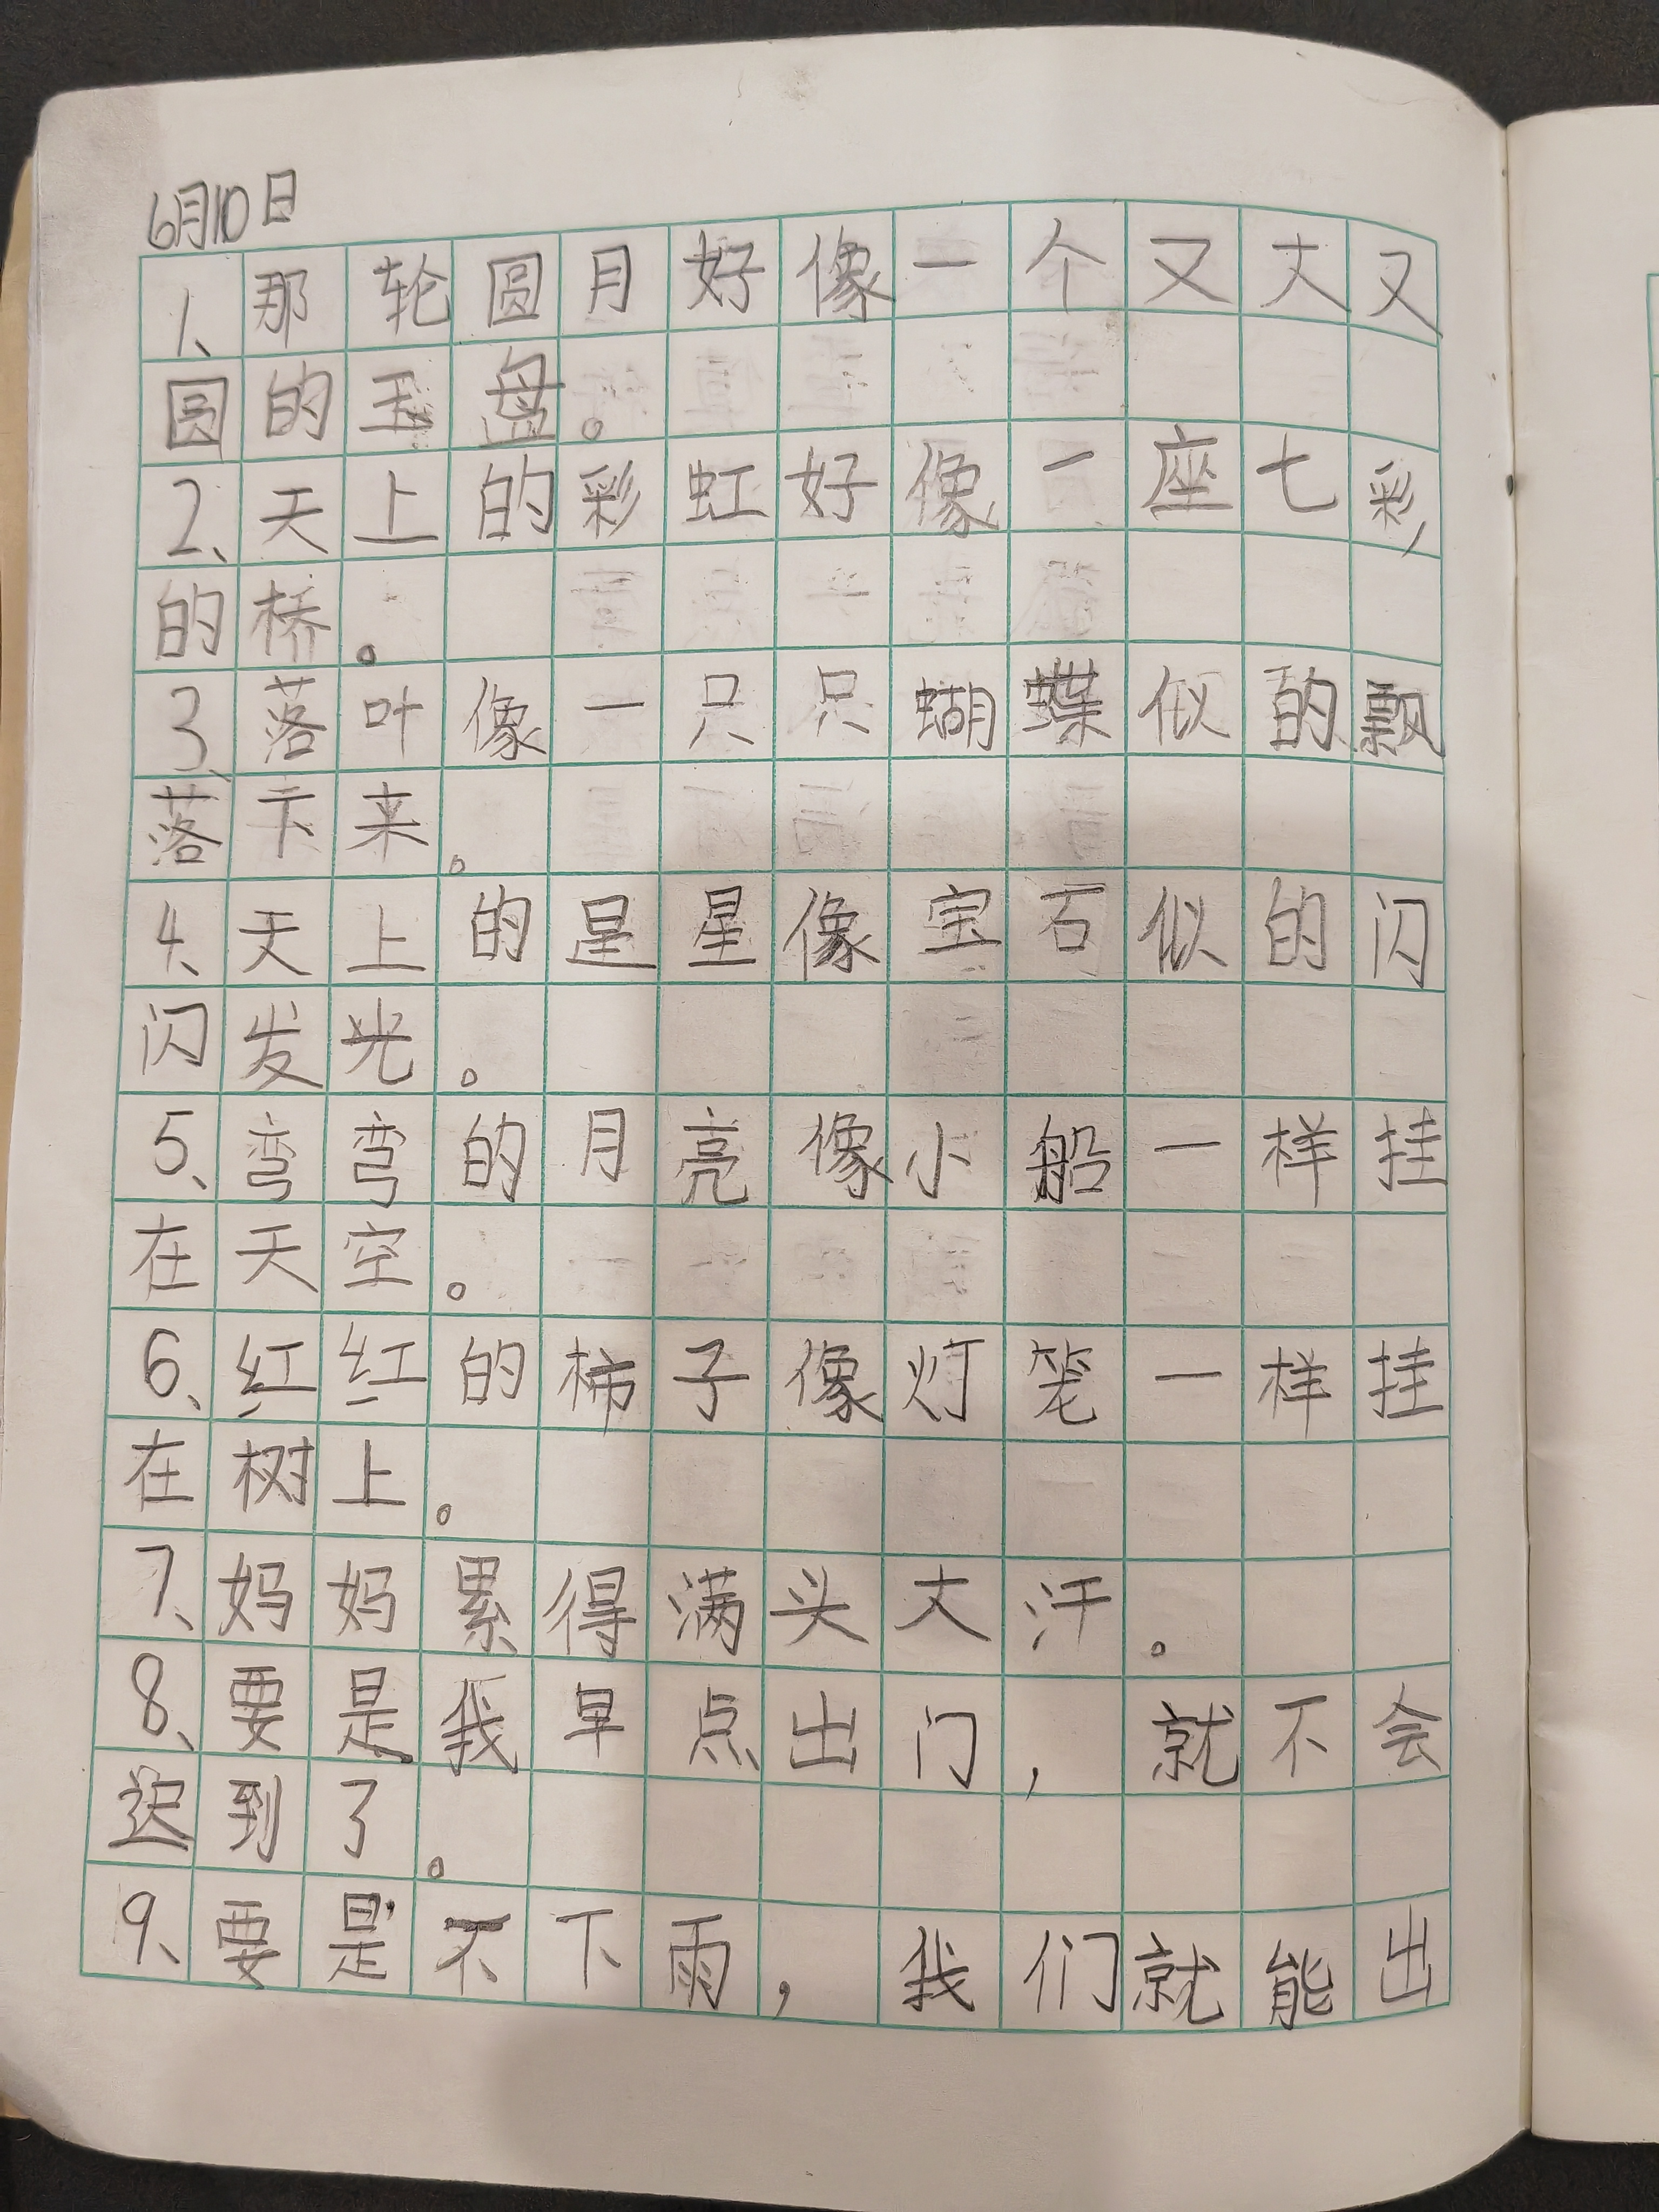 6月10日
1、那轮圆月好像一个又大又
圆的玉盘。
2、天上的彩虹好像一座七彩
的桥。
3、落叶像一只只蝴蝶似的飘
落下来。
4、天上的星星像宝石似的闪
闪发光。
5、弯弯的月亮像小船一样挂
在天空。
6、红红的柿子像灯笼一样挂
在树上。
7、妈妈累得满头大汗。
8、要是我早点出门，就不会
迟到了。
9、要是不下雨，我们就能出